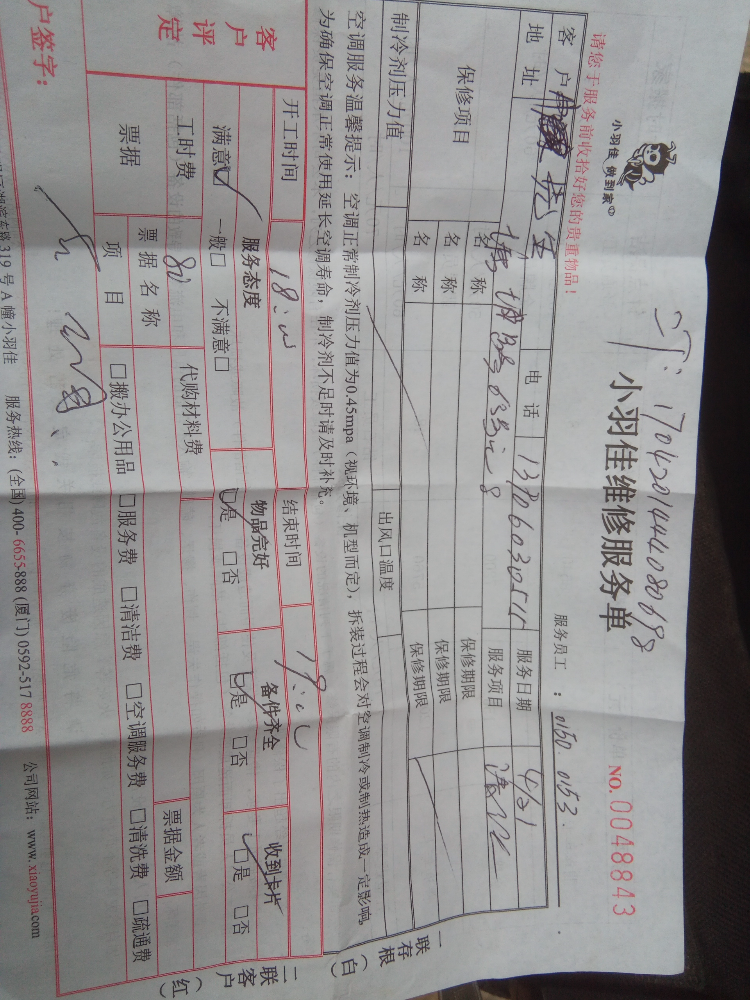 小羽佳 做到家
请您于服务前收拾好您的贵重物品！
1704201444080698
小羽佳维修服务单
NO. 0048843
服务员工：0150. 0153.
客户
电话
服务日期 4/21
地址
服务项目
保修项目
名称
保修期限
名称
保修期限
名称
保修期限
制冷剂压力值
出风口温度
空调服务温馨提示：空调正常制冷剂压力值为0.45mpa（视环境、机型而定），拆装过程会对空调制冷或制热造成一定影响，
为确保空调正常使用延长空调寿命，制冷剂不足时请及时补充。
一存根（白）
二客户（红）
联
联
开工时间
结束时间
客户评定
服务态度
物品完好
备件齐全
收到卡片
满意☑ 一般□ 不满意□
☑是 □否
☑是 □否
☑是 □否
工时费 80
代购材料费
票据
票据名称
票据金额
项目
□搬办公用品 □服务费 □清洁费 □空调服务费 □清洗费 □疏通费
户签字：
319号A幢小羽佳 服务热线：(全国) 400-6655-888 (厦门) 0592-517 8888 公司网站：www.xiaoyujia.com